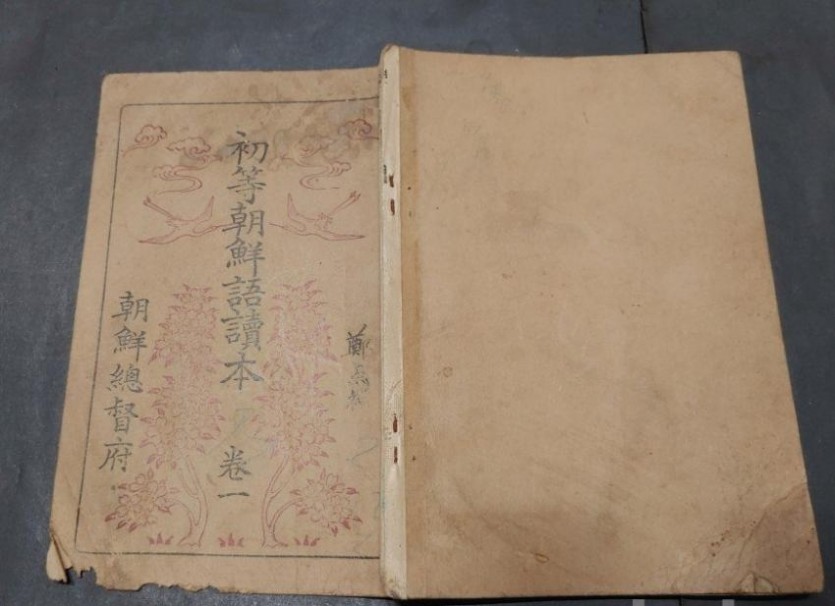 鄭
初等朝鮮語讀本 卷一
朝鮮總督府